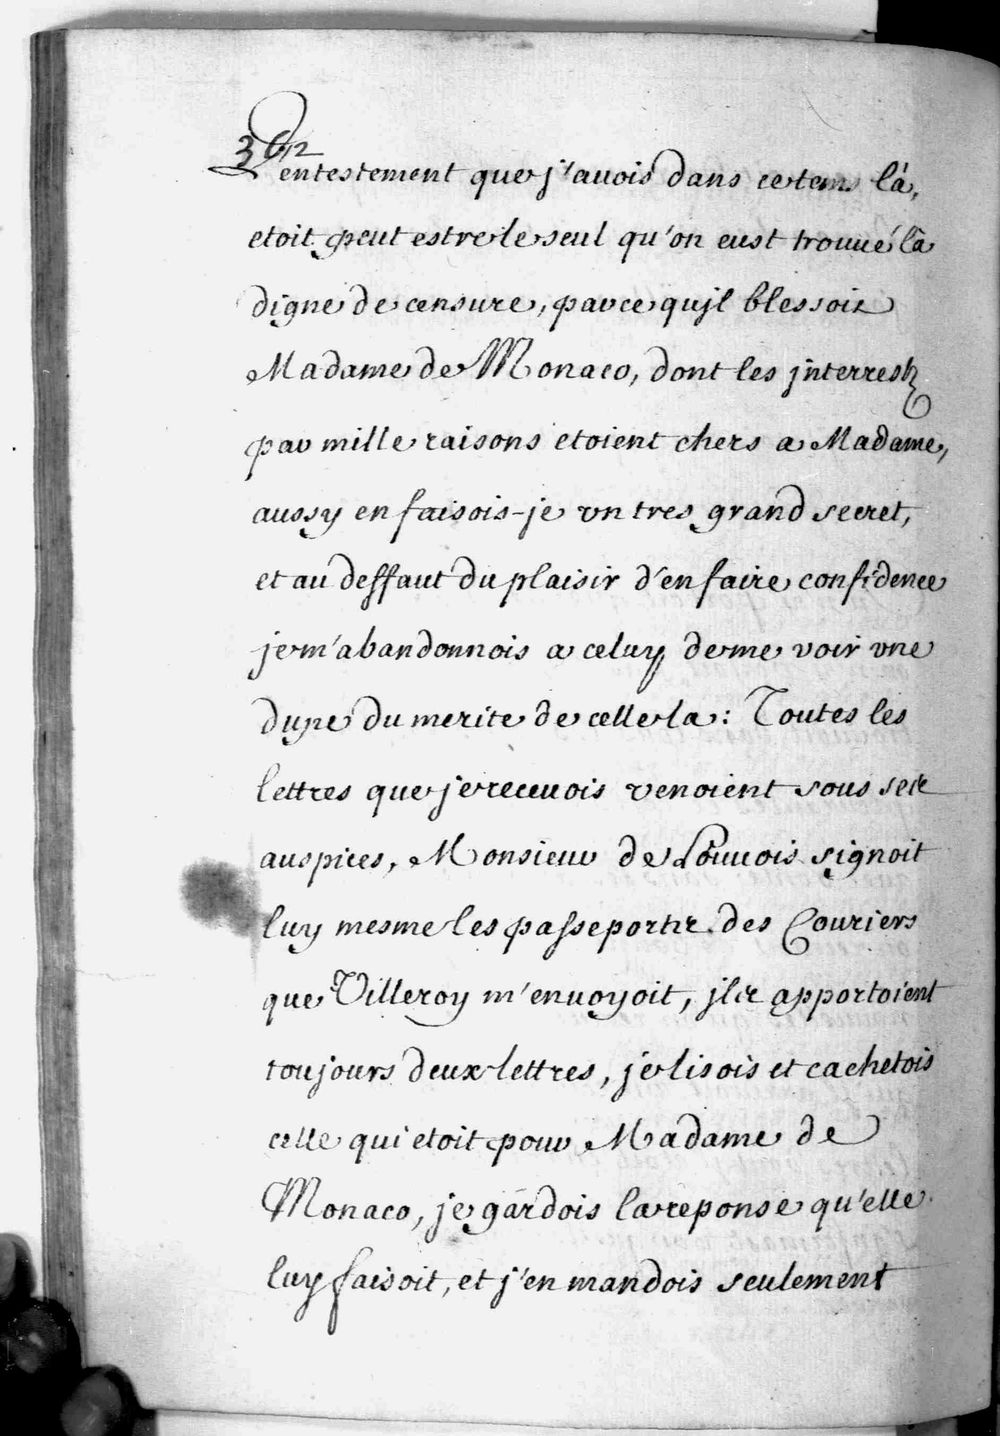 362
L'entestement que j'auois dans ce tems là,
etoit peut estre le seul qu'on eust trouué là
digne de censure, parce qu'jl blessoit
Madame de Monaco, dont les jnterrests
par mille raisons etoient chers a Madame,
aussy en faisois-je vn tres grand secret,
et au deffaut du plaisir d'en faire confidence
je m'abandonnois a celuy de me voir vne
dupe du merite de celle la: Toutes les
lettres que je receuois venoient sous ses
auspices, Monsieur de Louuois signoit
luy mesme les passeports des Couriers
que Villeroy m'enuoyoit, jls apportoient
toujours deux lettres, je lisois et cachetois
celle qui etoit pour Madame de
Monaco, je gardois la reponse qu'elle
luy faisoit, et j'en mandois seulement